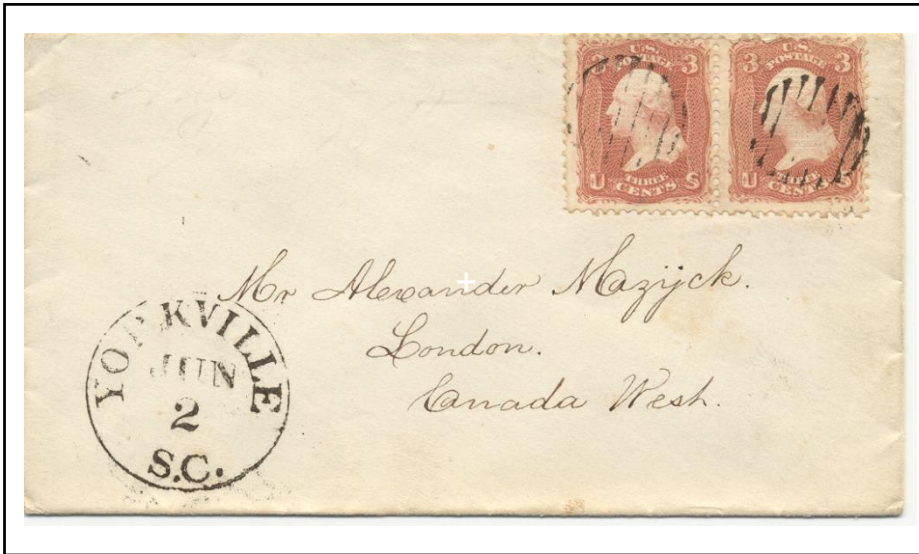 U.S. POSTAGE
3 3
THREE CENTS
U S
U.S. POSTAGE
3 3
CENTS
U S
Mr Alexander Mazÿck.
London.
Canada West.
YORKVILLE
JUN
2
S.C.